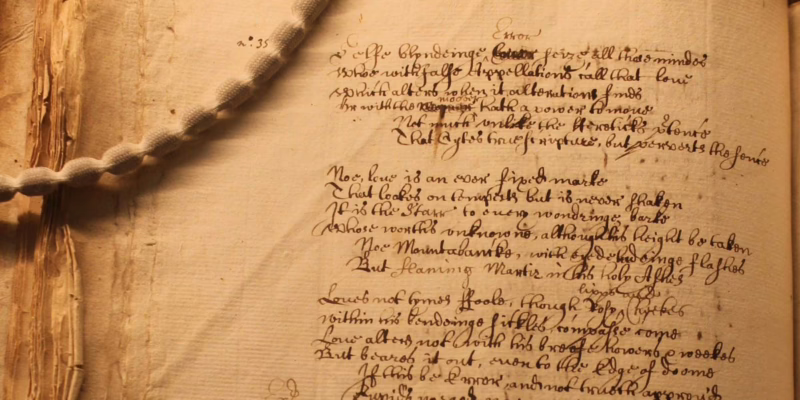 n.º 35
Error
selfe blyndeinge seize all those mindes
Whoe with false Appellations call that love
Which alters when it alterations finds
moover
Or with the hath a power to move
Not much unlike the Hereticks ptence
That Cytes true scripture, but perverts the sence
Noe, love is an ever fixed marke
That lookes on tempests but is never shaken
It is the Starr to every wandringe barke
Whose worths unknowne, although his height be taken
Noe Mountabancke, with eie-deludeinge flashes
But flaming Martir in his holy Ashes
Loves not tymes ffoole, though Rosy cheekes
lipps and
within his bendeinge sickles compasse come
Love alters not with his breefe howers & weekes
But beares it out, even to the Edge of doome
If this be Error and not trueth approv'd